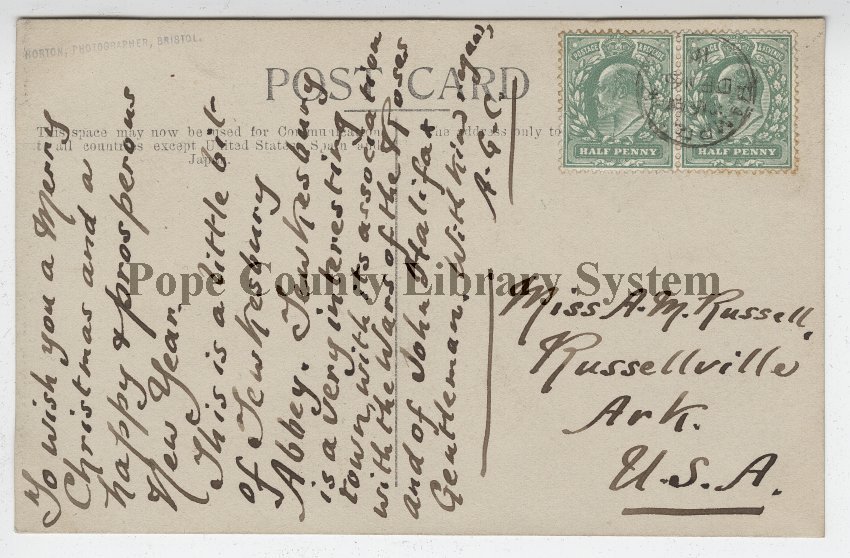 NORTON, PHOTOGRAPHER, BRISTOL.
POST CARD
This space may now be used for Communication
to all countries except United States, Spain and
Japan.
The address only to
POSTAGE & REVENUE
HALF PENNY
POSTAGE & REVENUE
HALF PENNY
To wish you a Merry
Christmas and a
happy & prosperous
New Year.
This is a little bit
of Tewkesbury
Abbey. Tewkesbury
is a very interesting
town, with its association
with the Wars of the Roses
and of John Halifax
Gentleman. With kind
A.G.C.
Miss A. M. Russell,
Russellville
Ark.
U.S.A.
Pope County Library System